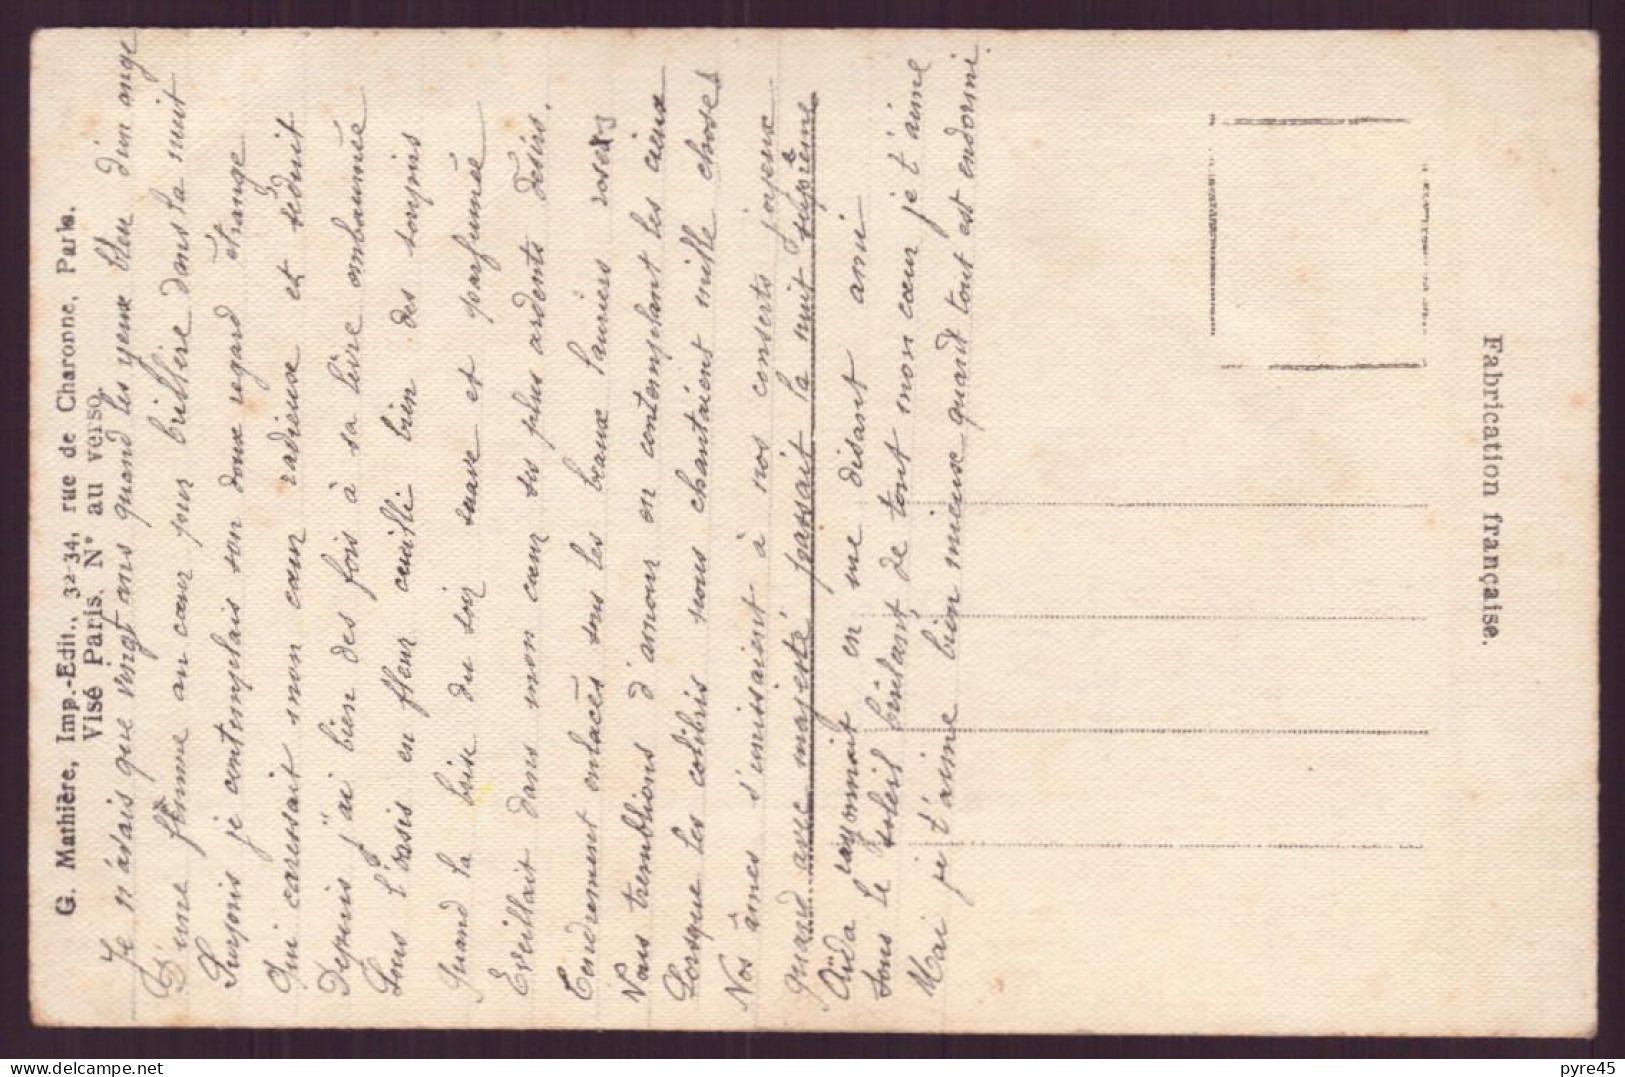 G. Mathière, Imp.-Edit., 32-34, rue de Charonne, Paris.
Visé Paris. N° au verso.
Je n'étais que vingt ans quand les yeux bleu d'un ange
D'une femme au cœur pur brillère dans la nuit
Surpris je contemplais son doux regard étrange
Qui caressait mon cœur radieuse et séduit
Depuis j'ai bien des fois à sa lèvre embaumée
Sous l'oasis en fleur cueilli bien des soupirs
Quand la brise du soir suave et parfumée
Eveillait dans mon cœur ses plus ardents désirs.
Tendrement enlacés sous les beaux lauriers roses
Nous tremblions d'amour en contemplant les cieux
Lorsque les colibris nous chantaient mille choses
Nos âmes s'unissaient à nos conserts joyeux
quand avec majesté passait la nuit suprême
Aïda rayonnait en me disant ami
Sous le soleil brûlant, de tout mon cœur je t'aime
Mai je t'aime bien mieux quand tout est endormi.
Fabrication française.
delcampe.net
pyre45